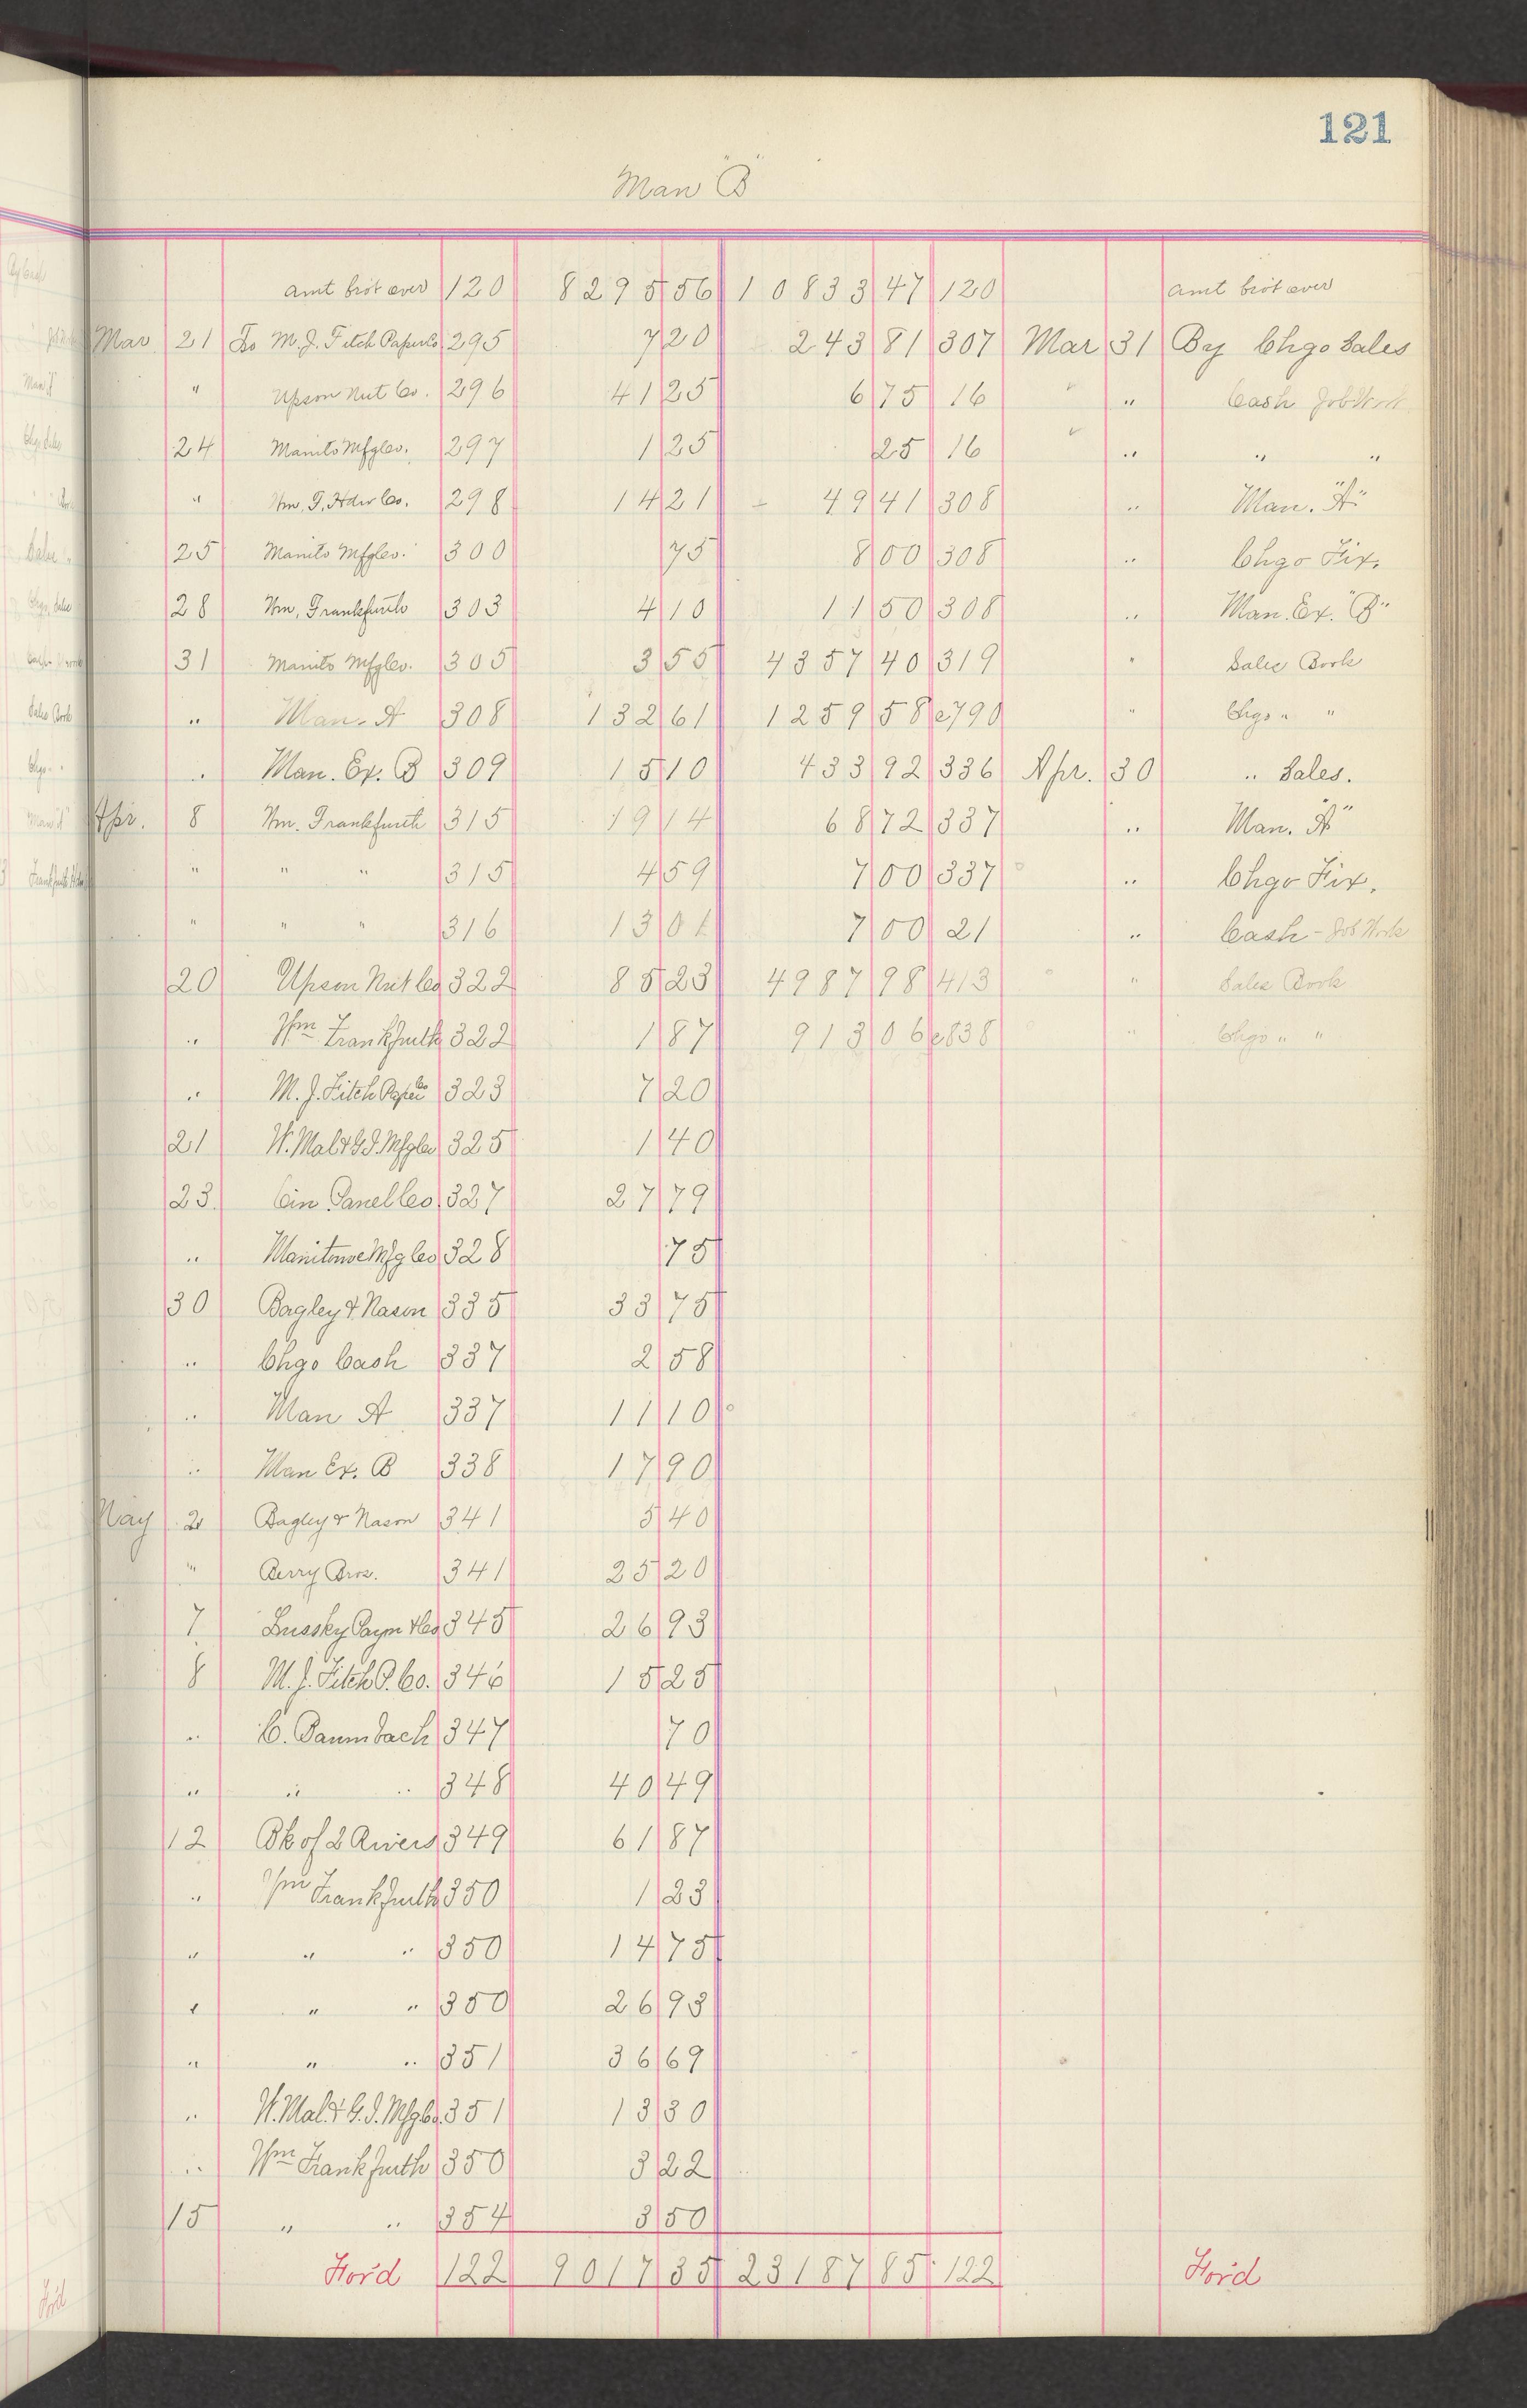 121
Man "B"
amt brot over 120 8295 56 10833 47 120 amt brot over
Mar 21 To M. J. Fitch Paper Co 295 7 20 243 81 307 Mar 31 By Chgo Sales
" Upson Nut Co. 296 41 25 6 75 16 " Cash Job Work
24 Manito Mfg Co. 297 1 25 25 16 " " "
" Wm. F. Hdw Co. 298 14 21 49 41 308 " Man. "A"
25 Manito Mfg Co. 300 75 8 00 308 " Chgo Fix.
28 Wm. Frankfurth 303 4 10 11 50 308 " Man. Ex. "B"
31 Manito Mfg Co. 305 3 55 4357 40 319 " Sales Book
" Man. A 308 132 61 1259 58 c790 " Chgo " "
" Man. Ex. B 309 15 10 433 92 336 Apr. 30 " Sales.
Apr. 8 Wm. Frankfurth 315 19 14 68 72 337 " Man. "A"
" " " 315 4 59 7 00 337 " Chgo Fix.
" " " 316 13 01 7 00 21 " Cash - Job Work
20 Upson Nut Co 322 85 23 4987 98 413 " Sales Book
" Wm Frankfurth 322 1 87 913 06 c838 " Chgo " "
" M. J. Fitch Paper Co 323 7 20
21 W. Mal & G. I. Mfg Co 325 1 40
23 Cin Panel Co. 327 27 79
" Manitowoc Mfg Co 328 75
30 Bagley & Nason 335 33 75
" Chgo Cash 337 2 58
" Man A 337 11 10
" Man Ex. B 338 17 90
May 2 Bagley & Nason 341 5 40
" Berry Bros. 341 25 20
7 Lussky Payn & Co 345 26 93
8 M. J. Fitch P. Co. 346 15 25
" C. Baumbach 347 70
" " " 348 40 49
12 Bk of 2 Rivers 349 61 87
" Wm Frankfurth 350 1 23
" " " 350 14 75
" " " 350 26 93
" " " 351 36 69
" W. Mal. & G. I. Mfg Co. 351 13 30
" Wm Frankfurth 350 3 22
15 " " 354 3 50
For'd 122 9017 35 23187 85 122 For'd